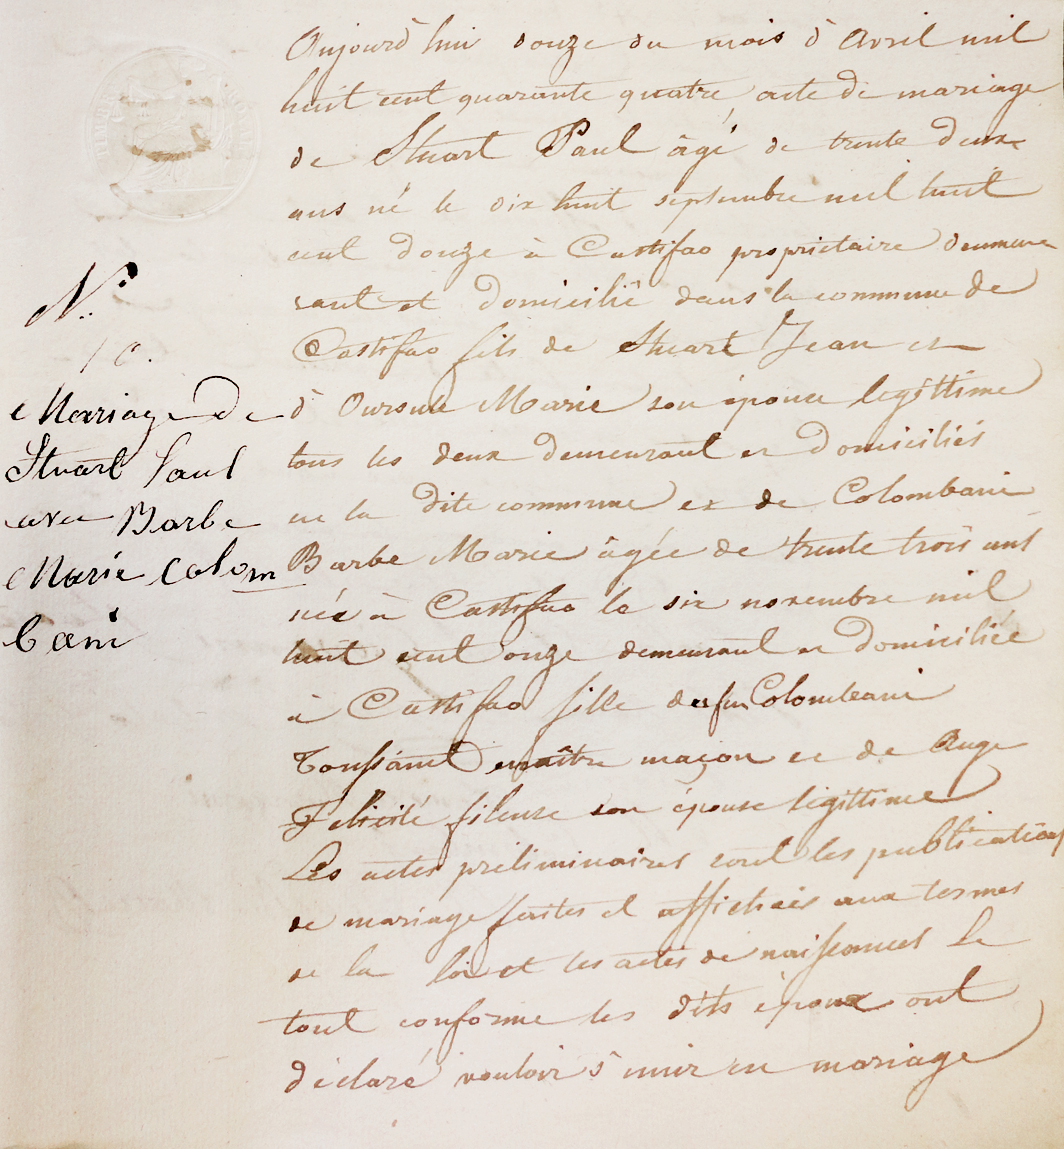 N.o
10.
Mariage De
Stuart Paul
avec Barbe
Marie Colom
bani
Aujourd'hui douze du mois d'Avril mil
huit cent quarante quatre, acte de mariage
de Stuart Paul âgé de trente deux
ans né le dix huit septembre mil huit
cent douze à Castifao propriétaire demeu
rant et domicilié dans la commune de
Castifao fils de Stuart Jean et
d'Oursule Marie son épouse légittime
tous les deux demeurant et domiciliés
en la dite commune et de Colombani
Barbe Marie âgée de trente trois ans
née à Castifao le six novembre mil
huit cent onze demeurant et domiciliée
à Castifao fille de feu Colombani
Toussaint maître maçon et de Ange
Félicité fileuse son épouse légittime
Les actes préliminaires sont les publications
de mariage faites et affichées aux termes
de la loi et les actes de naissances Le
tout conforme les dits époux ont
déclaré vouloir s'unir en mariage